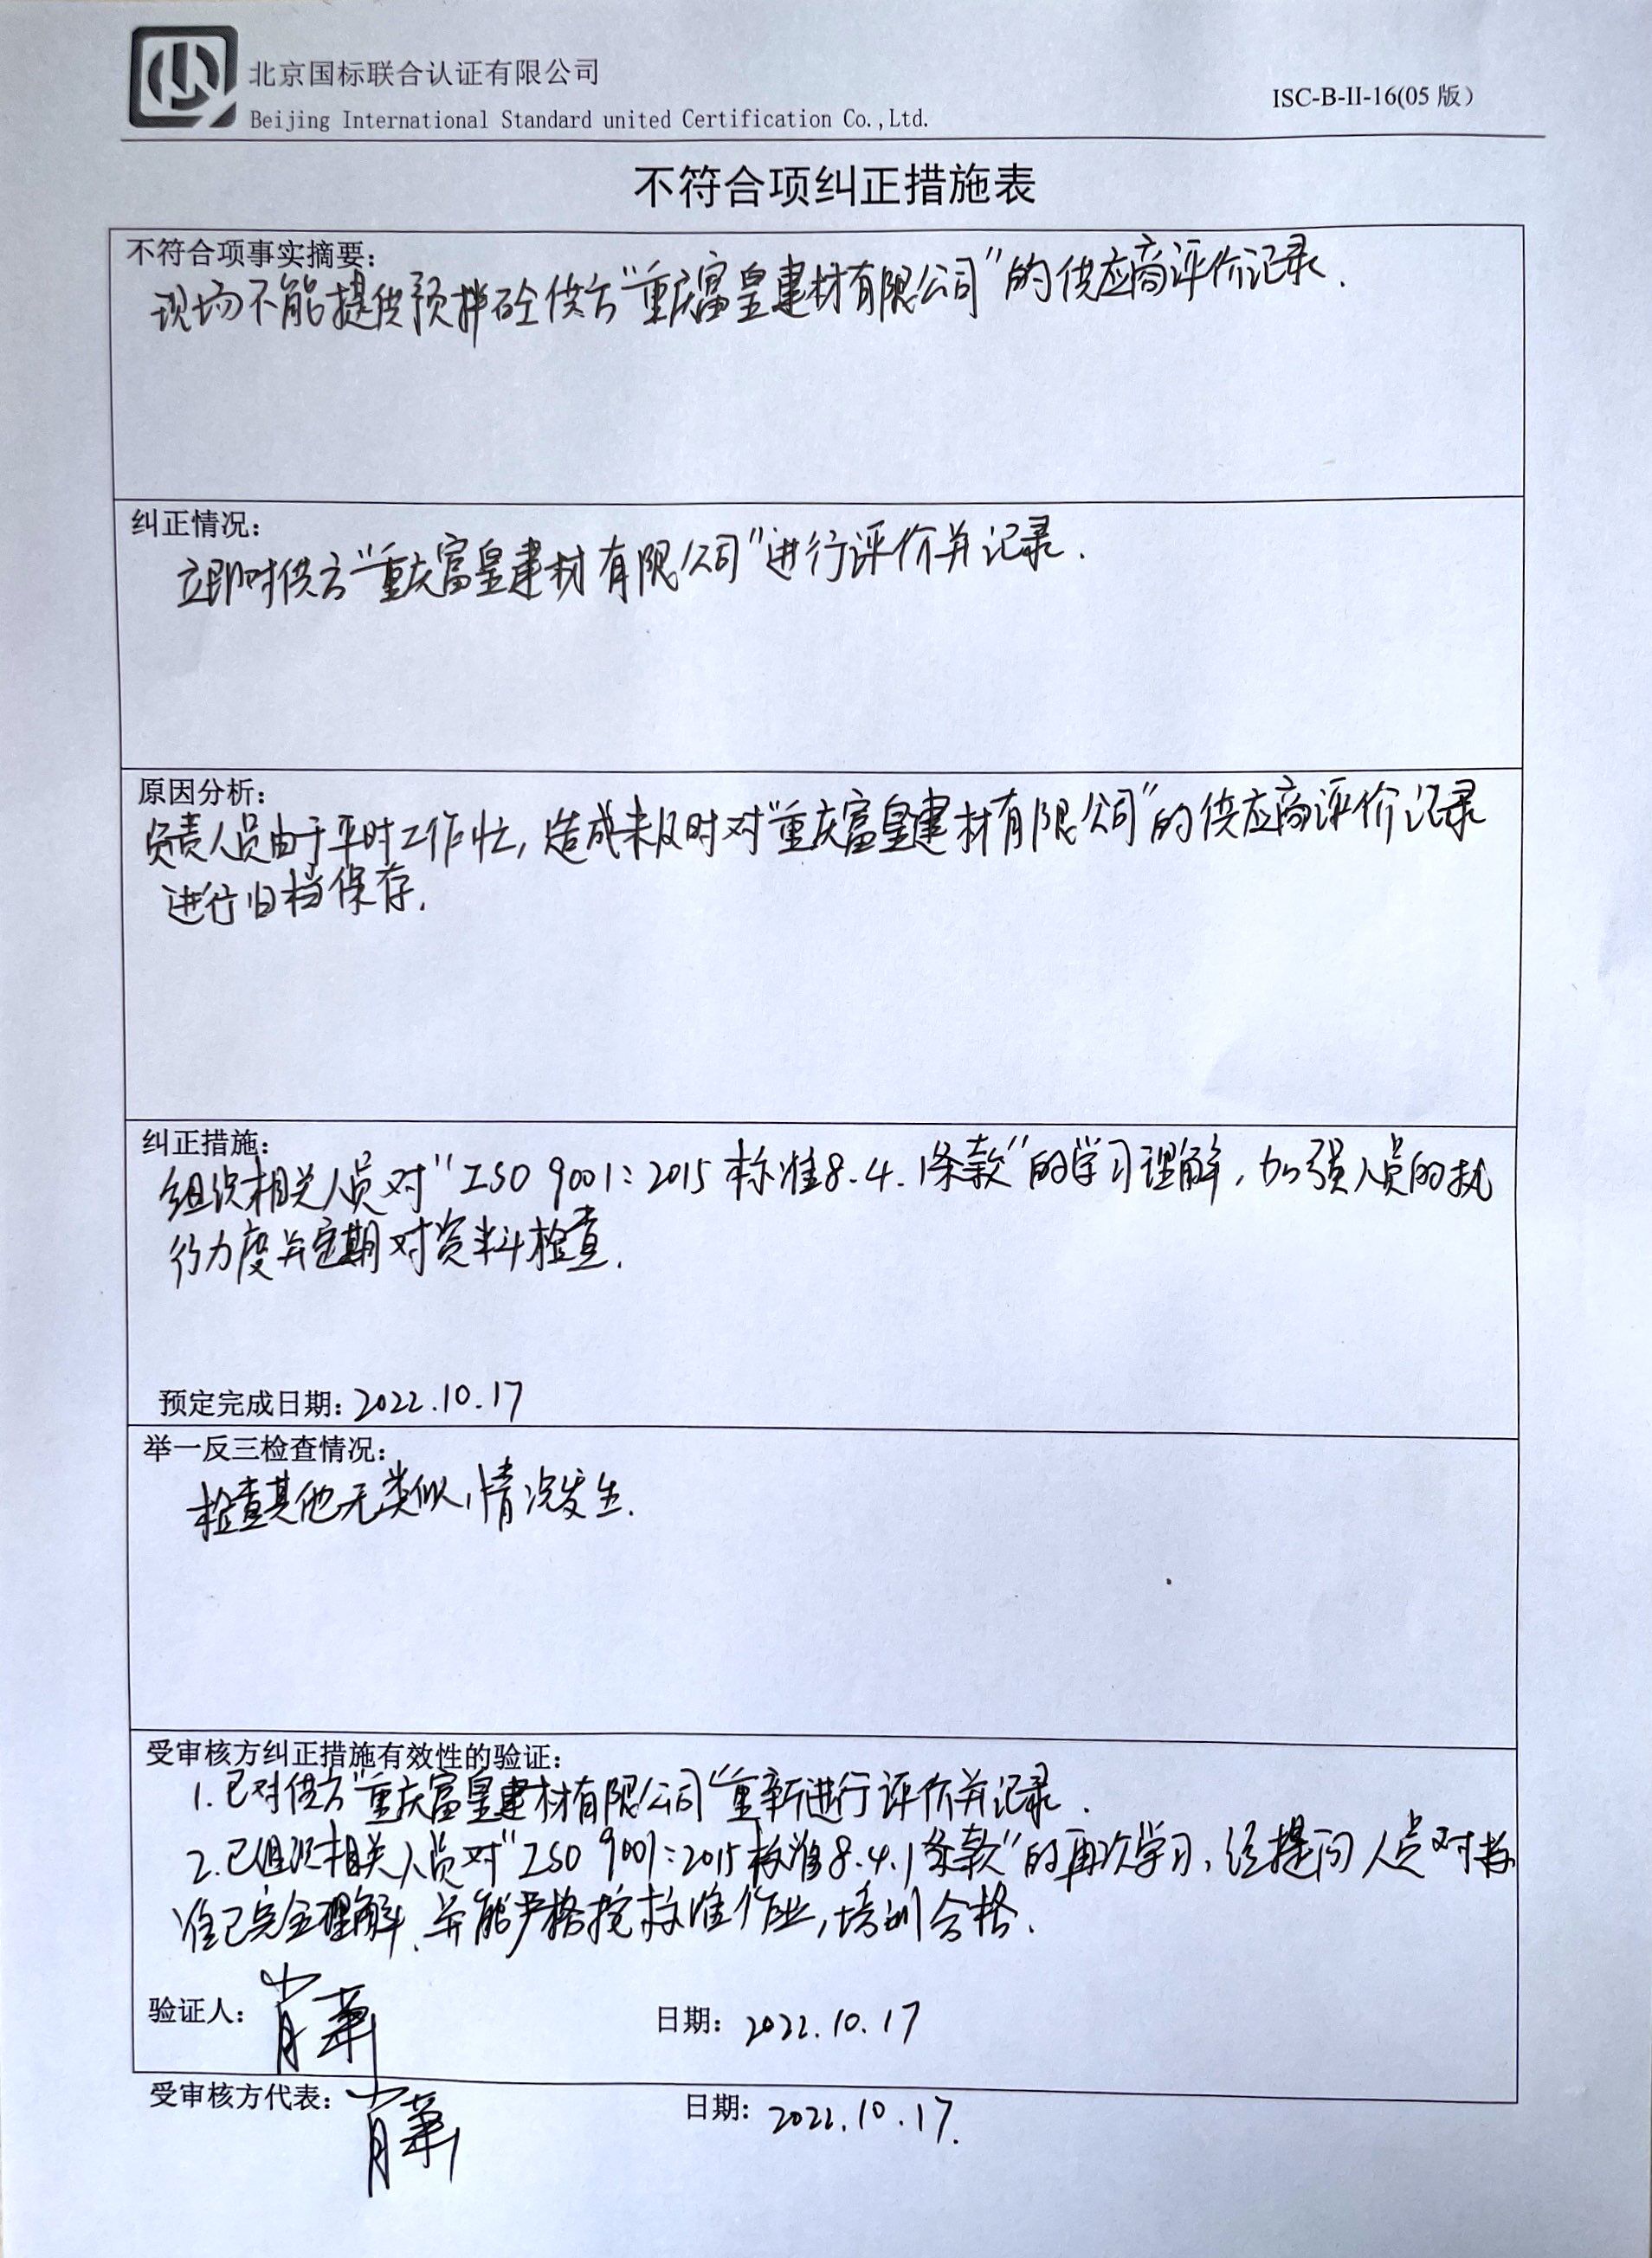 北京国标联合认证有限公司
Beijing International Standard united Certification Co.,Ltd.
ISC-B-II-16(05 版)
不符合项纠正措施表
不符合项事实摘要:
现场不能提供预拌砼供方“重庆富皇建材有限公司”的供应商评价记录.
纠正情况:
立即对供方“重庆富皇建材有限公司”进行评价并记录.
原因分析:
负责人员由于平时工作忙,造成未及时对“重庆富皇建材有限公司”的供应商评价记录
进行归档保存.
纠正措施:
组织相关人员对“ISO 9001:2015标准8.4.1条款”的学习理解,加强人员的执
行力度并定期对资料检查.
预定完成日期:2022.10.17
举一反三检查情况:
检查其他无类似情况发生.
受审核方纠正措施有效性的验证:
1.已对供方“重庆富皇建材有限公司”重新进行评价并记录.
2.已组织相关人员对“ISO 9001:2015标准8.4.1条款”的再次学习,经提问人员对标
准已完全理解,并能严格按标准作业,培训合格.
验证人:肖苹 日期:2022.10.17
受审核方代表:肖苹 日期:2022.10.17.